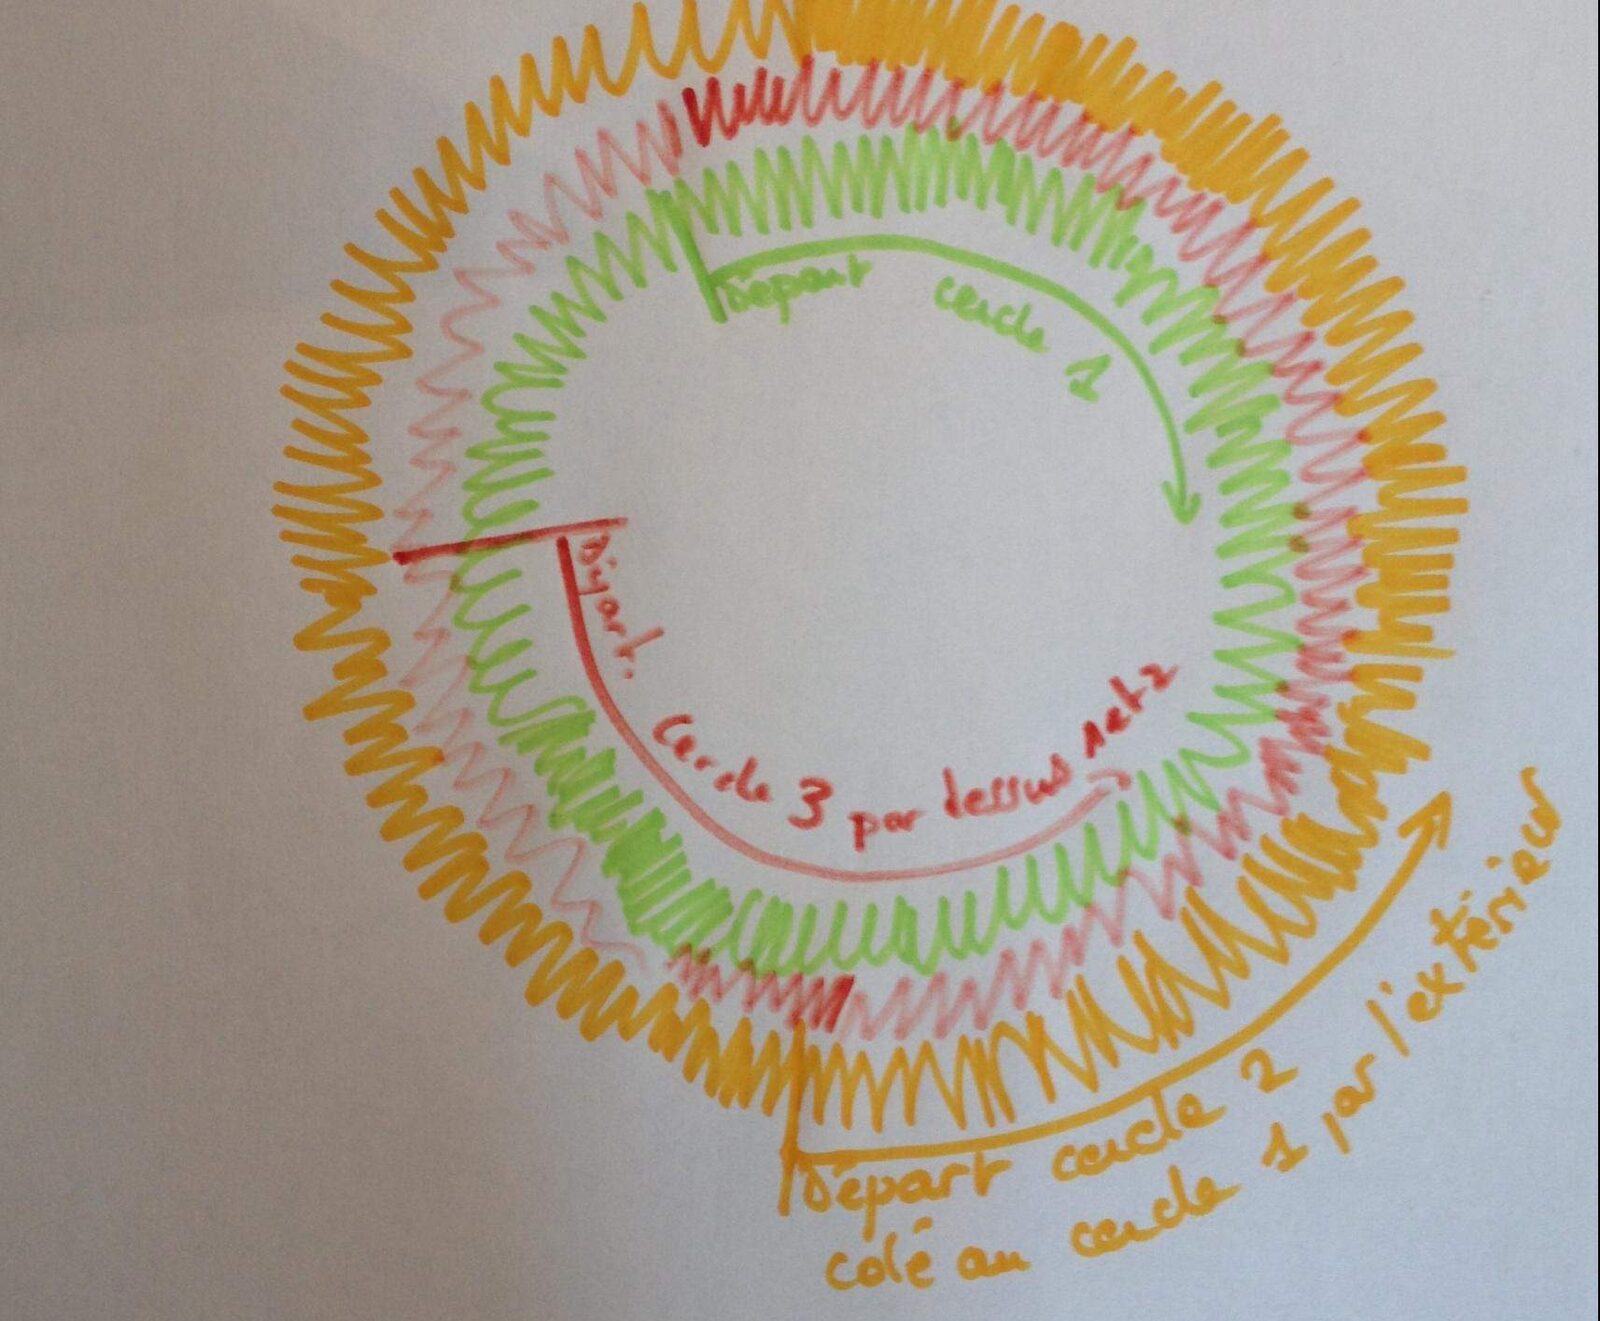 Départ cercle 1
Départ. Cercle 3 par dessus 1 et 2
Départ cercle 2
colé au cercle 1 par l'extérieur